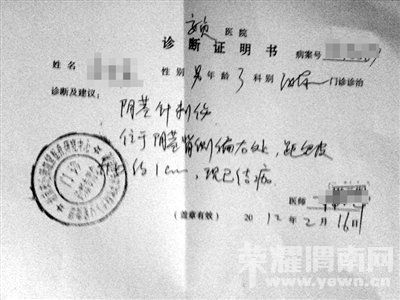 医院
诊断证明书
病案号
姓名 性别 男 年龄 3 科别 门诊诊治
诊断及建议：
阴茎针刺伤
位于阴茎背侧偏右处，距包皮
约1cm，现已结痂。
医师
（盖章有效） 2012年2月16日
荣耀渭南网
www.yewn.cn